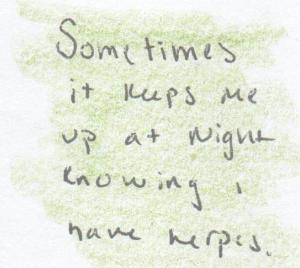 Sometimes
it keeps me
up at night
knowing i
have herpes.